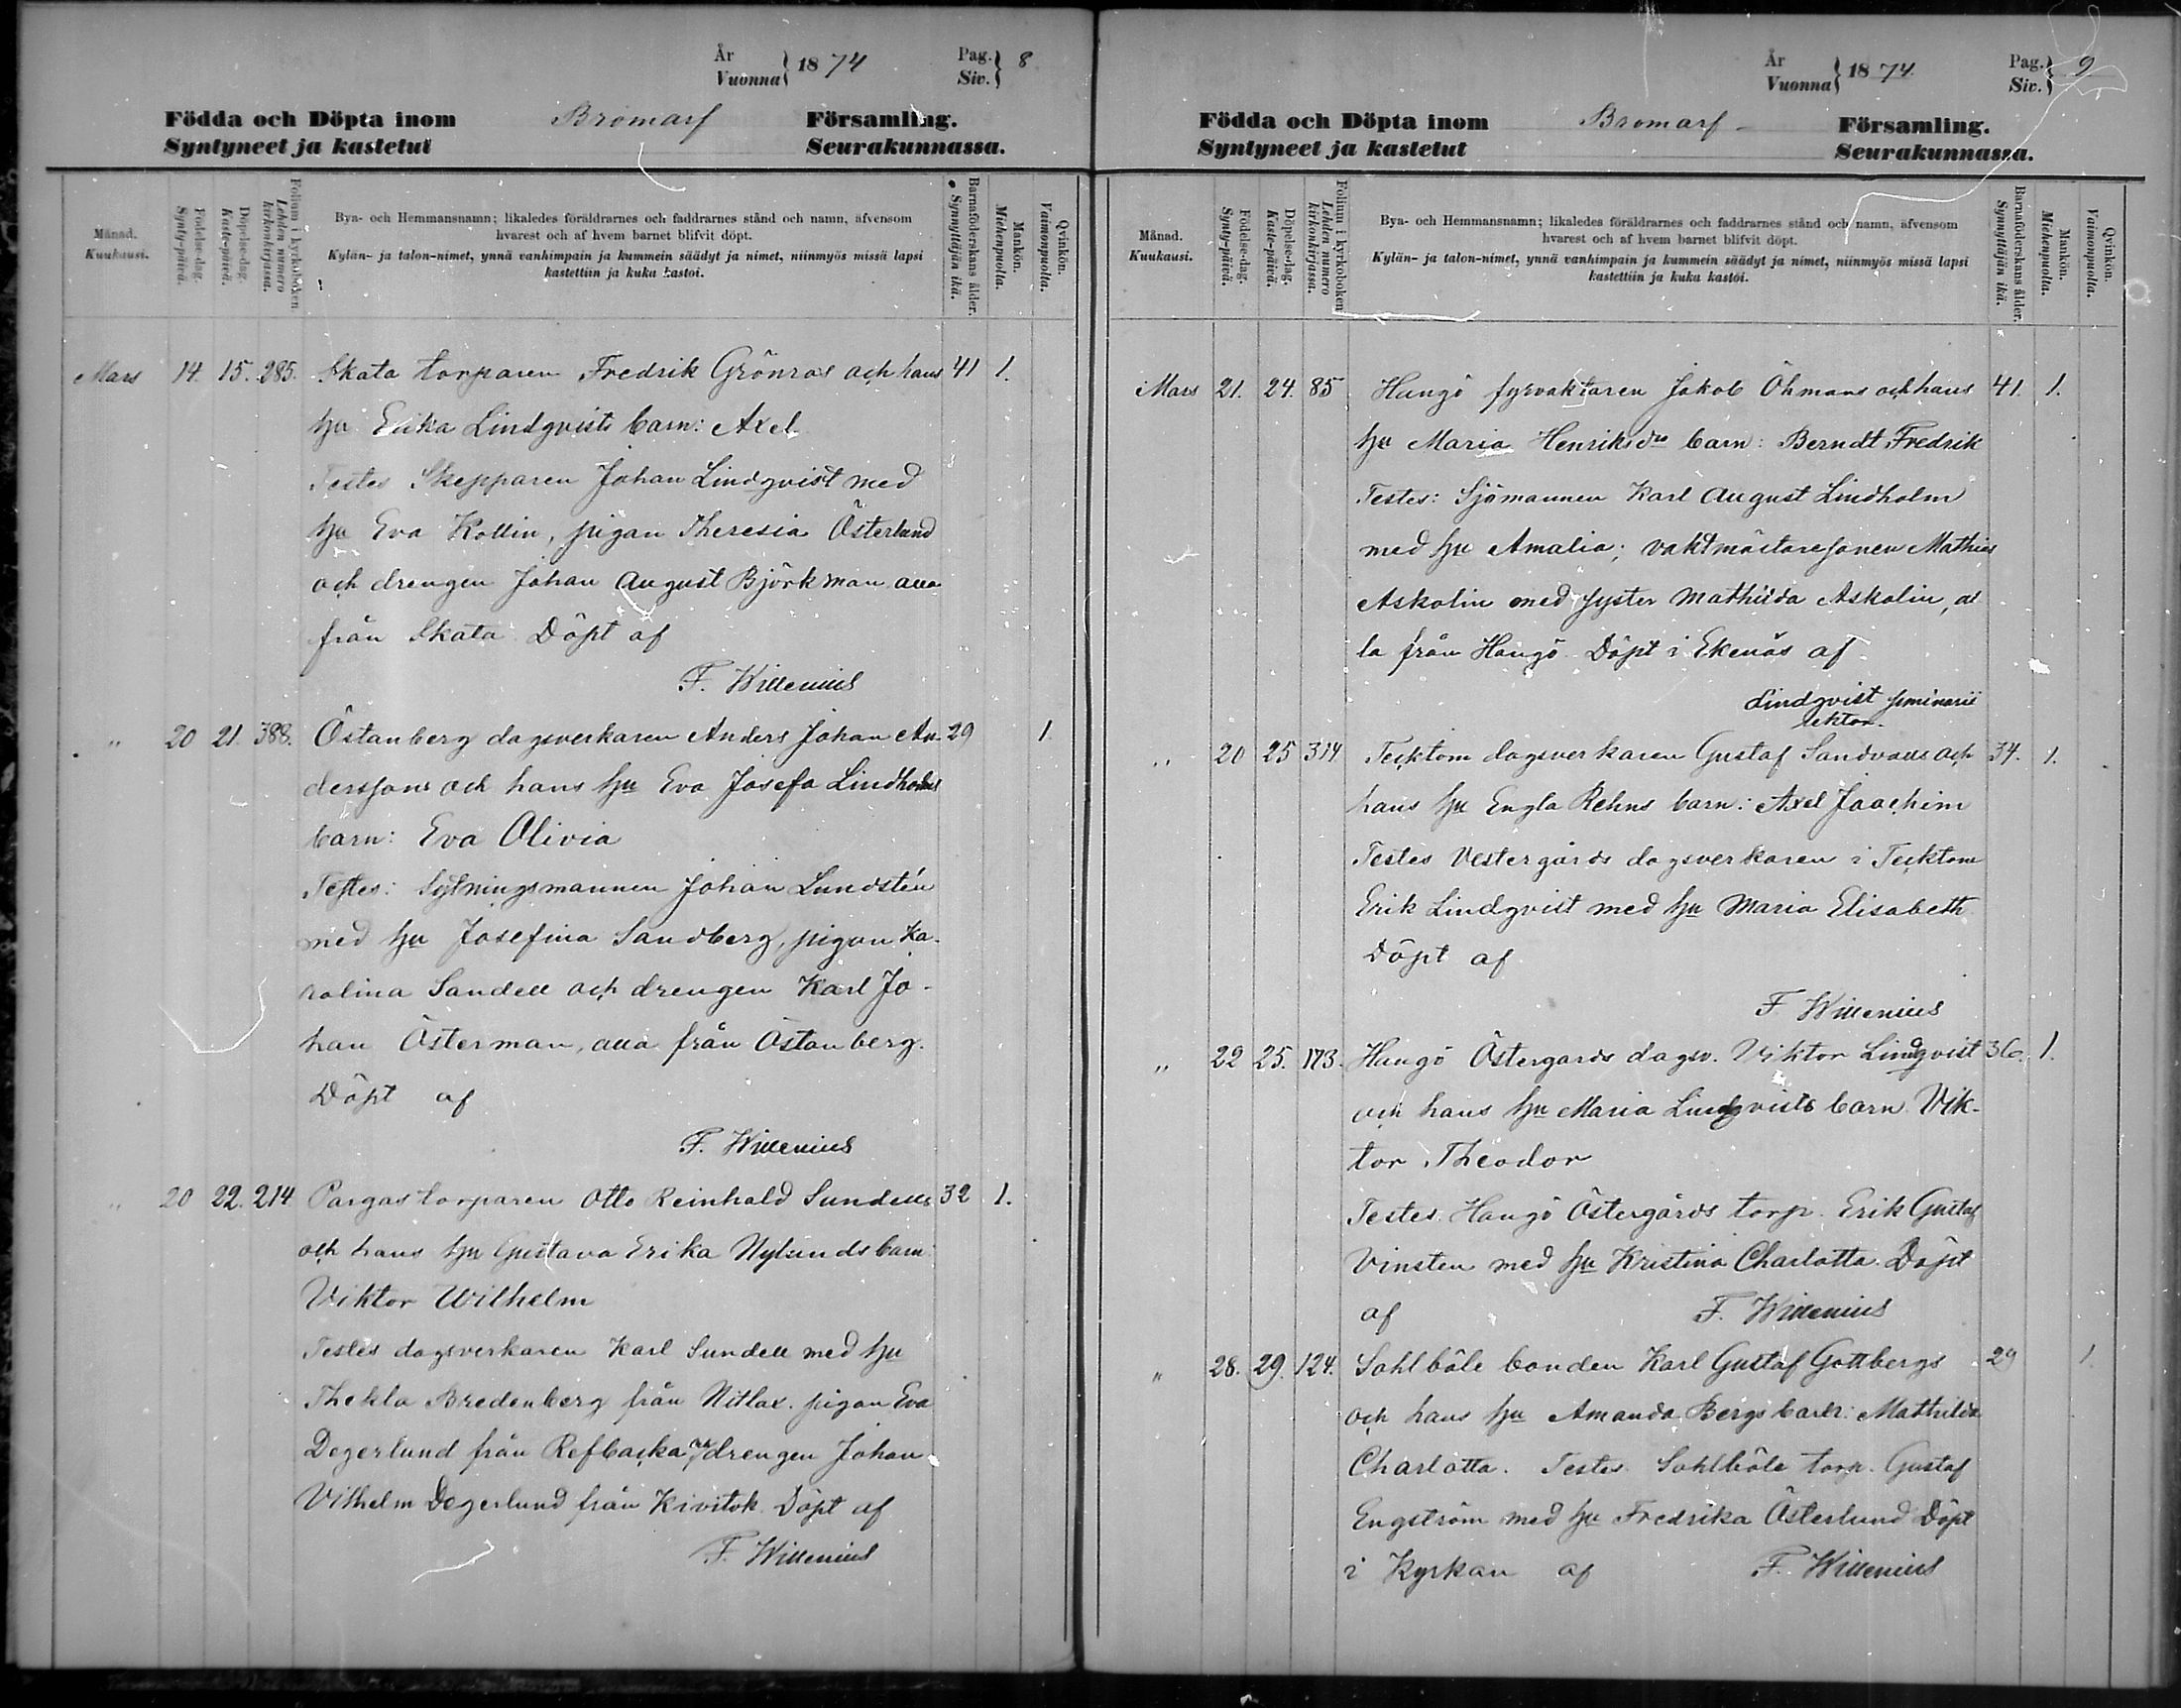 År
Vuonna } 1874
Pag.
Siv. } 8
Födda och Döpta inom Bromarf Församling.
Syntyneet ja kastetut Seurakunnassa.
Månad.
Kuukausi.
Födelse-dag.
Synty-päivä.
Döpelse-dag.
Kaste-päivä.
Folium i kyrkoboken
Lehden numero
kirkonkirjassa.
Bya- och Hemmansnamn; likaledes föräldrarnes och faddrarnes stånd och namn, äfvensom
hvarest och af hvem barnet blifvit döpt.
Kylän- ja talon-nimet, ynnä vanhimpain ja kummein säädyt ja nimet, niinmyös missä lapsi
kastettiin ja kuka kastoi.
Barnaföderskans ålder.
Synnyttäjän ikä.
Mankön.
Miehenpuolta.
Qvinkön.
Vaimonpuolta.
Mars 14. 15. 285. Skata torparen Fredrik Grönros och hans 41 1.
hu Erika Lindqvists barn: Axel
Testes Skepparen Johan Lindqvist med
hu Eva Kollin, pigan Theresia Österlund
och drengen Johan August Björkman alla
från Skata Döpt af
F. Willenius
" 20 21. 388. Östanberg dagsverkaren Anders Johan An- 29 1.
derssons och hans hu Eva Josefa Lindholms
barn: Eva Olivia
Testes: Sytningsmannen Johan Lundstén
med hu Josefina Sandberg, pigan Ka-
rolina Sandell och drengen Karl Jo-
han Österman, alla från Östanberg.
Döpt af
F. Willenius
" 20 22. 214 Pargas torparen Otto Reinhold Sundells 32 1.
och hans hu Gustava Erika Nylunds barn
Viktor Wilhelm
Testes dagsverkaren Karl Sundell med hu
Thekla Bredenberg från Nitlax. pigan Eva
Degerlund från Refbacka drengen Johan
Vilhelm Degerlund från Kivitok Döpt af
F. Willenius
År
Vuonna } 1874
Pag.
Siv. } 9
Födda och Döpta inom Bromarf Församling.
Syntyneet ja kastetut Seurakunnassa.
Månad.
Kuukausi.
Födelse-dag.
Synty-päivä.
Döpelse-dag.
Kaste-päivä.
Folium i kyrkoboken
Lehden numero
kirkonkirjassa.
Bya- och Hemmansnamn; likaledes föräldrarnes och faddrarnes stånd och namn, äfvensom
hvarest och af hvem barnet blifvit döpt.
Kylän- ja talon-nimet, ynnä vanhimpain ja kummein säädyt ja nimet, niinmyös missä lapsi
kastettiin ja kuka kastoi.
Barnaföderskans ålder.
Synnyttäjän ikä.
Mankön.
Miehenpuolta.
Qvinkön.
Vaimonpuolta.
Mars 21. 24. 85 Hangö fyrvaktaren Jakob Öhmans och hans 41. 1.
hu Maria Henriksdrs barn: Berndt Fredrik
Testes: Sjömannen Karl August Lindholm
med hu Amalia; vaktmästaresonen Mathias
Askolin med syster Mathilda Askolin, al
la från Hangö Döpt i Ekenäs af
Lindqvist seminarii
lektor.
" 20 25 314 Tecktom dagsverkaren Gustaf Sandvalls och 34. 1.
hans hu Engla Rehns barn: Axel Joachim
Testes Vestergårds dagsverkaren i Tecktom
Erik Lindqvist med hu Maria Elisabeth
Döpt af
F Willenius
" 22 25. 173. Hangö Östergards dagsv. Viktor Lindqvist 36. 1.
och hans hu Maria Lindqvists barn Vik-
tor Theodor
Testes Hangö Östergårds torp. Erik Gustaf
Vinsten med hu Kristina Charlotta. Döpt
af F. Willenius
" 28. 29. 124. Sahlböle bonden Karl Gustaf Gottbergs 29 1.
och hans hu Amanda Bergs barn: Mathilda
Charlotta. Testes Sahlböle torp. Gustaf
Engström med hu Fredrika Österlund Döpt
i Kyrkan af F. Willenius